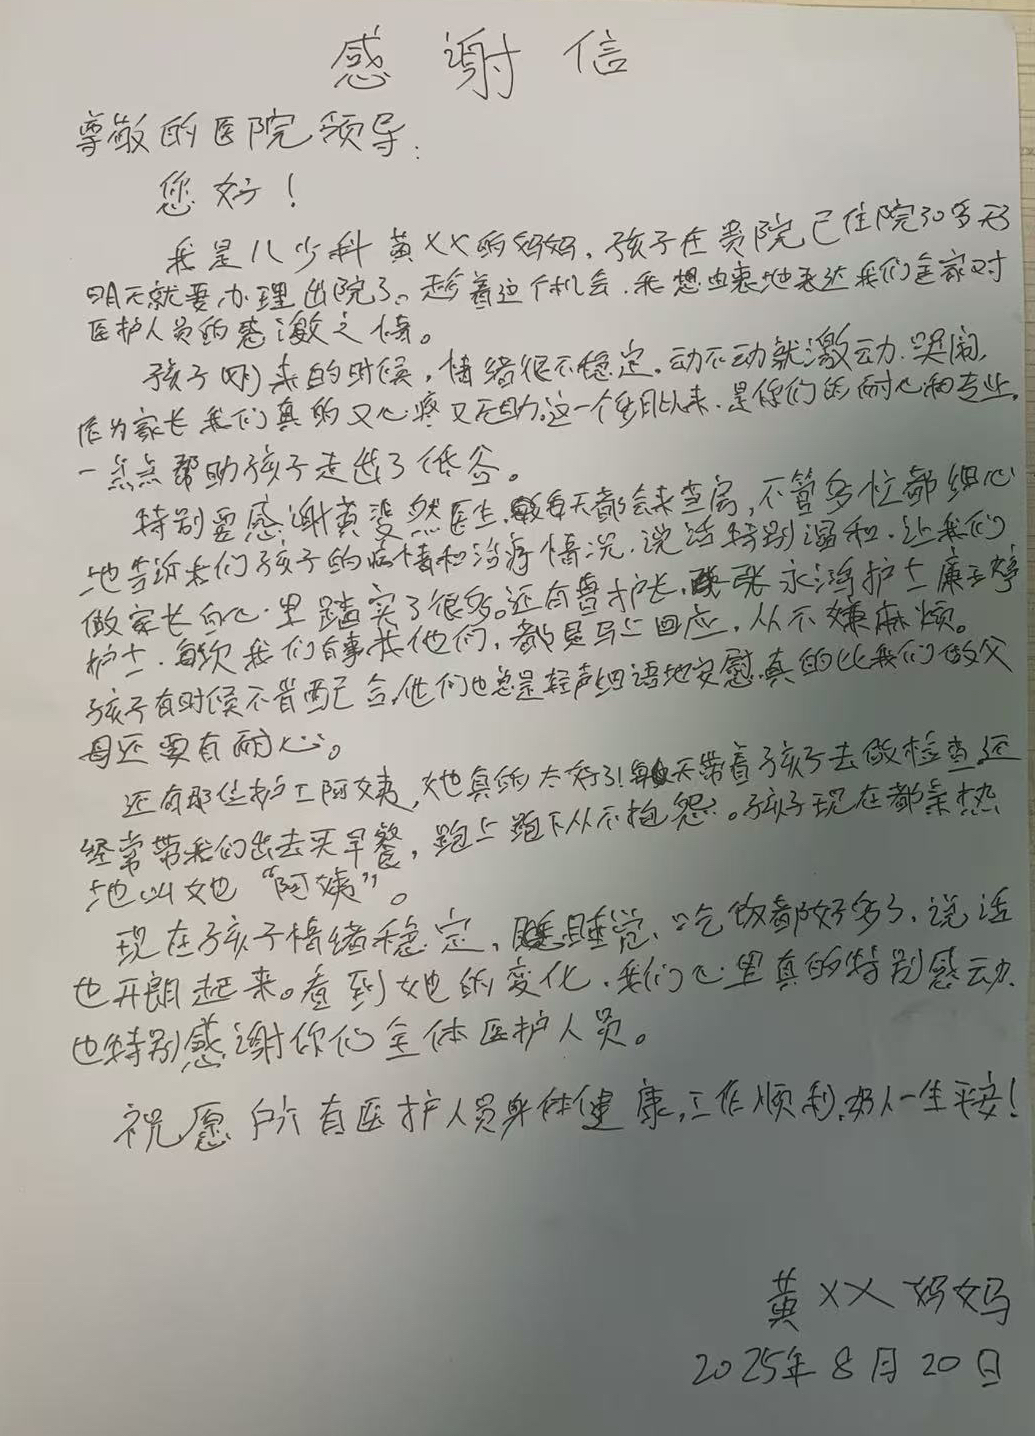 感谢信
尊敬的医院领导:
您好!
我是儿少科黄XX的妈妈,孩子在贵院已住院30多天
明天就要办理出院了。趁着这个机会,我想由衷地表达我们全家对
医护人员的感激之情。
孩子刚来的时候,情绪很不稳定。动不动就激动、哭闹,
作为家长我们真的又心疼又无助。这一个多月以来,是你们的耐心和专业,
一点点帮助孩子走出了低谷。
特别要感谢黄斐然医生,每天都会来查房,不管多忙都细心
地告诉我们孩子的病情和治疗情况,说话特别温和,让我们
做家长的心里踏实了很多。还有曹护长,张永鸿护士廉玉婷
护士,每次我们有事找他们,都是马上回应,从不嫌麻烦。
孩子有时候不肯配合,他们也总是轻声细语地安慰,真的比我们做父
母还要有耐心。
还有那位护工阿姨,她真的太好了!每天带着孩子去做检查,还
经常带我们出去买早餐,跑上跑下从不抱怨。孩子现在都亲热
地叫她“阿姨”。
现在孩子情绪稳定,睡觉、吃饭都好多了,说话
也开朗起来。看到她的变化,我们心里真的特别感动,
也特别感谢你们全体医护人员。
祝愿所有医护人员身体健康,工作顺利,好人一生平安!
黄XX妈妈
2025年8月20日